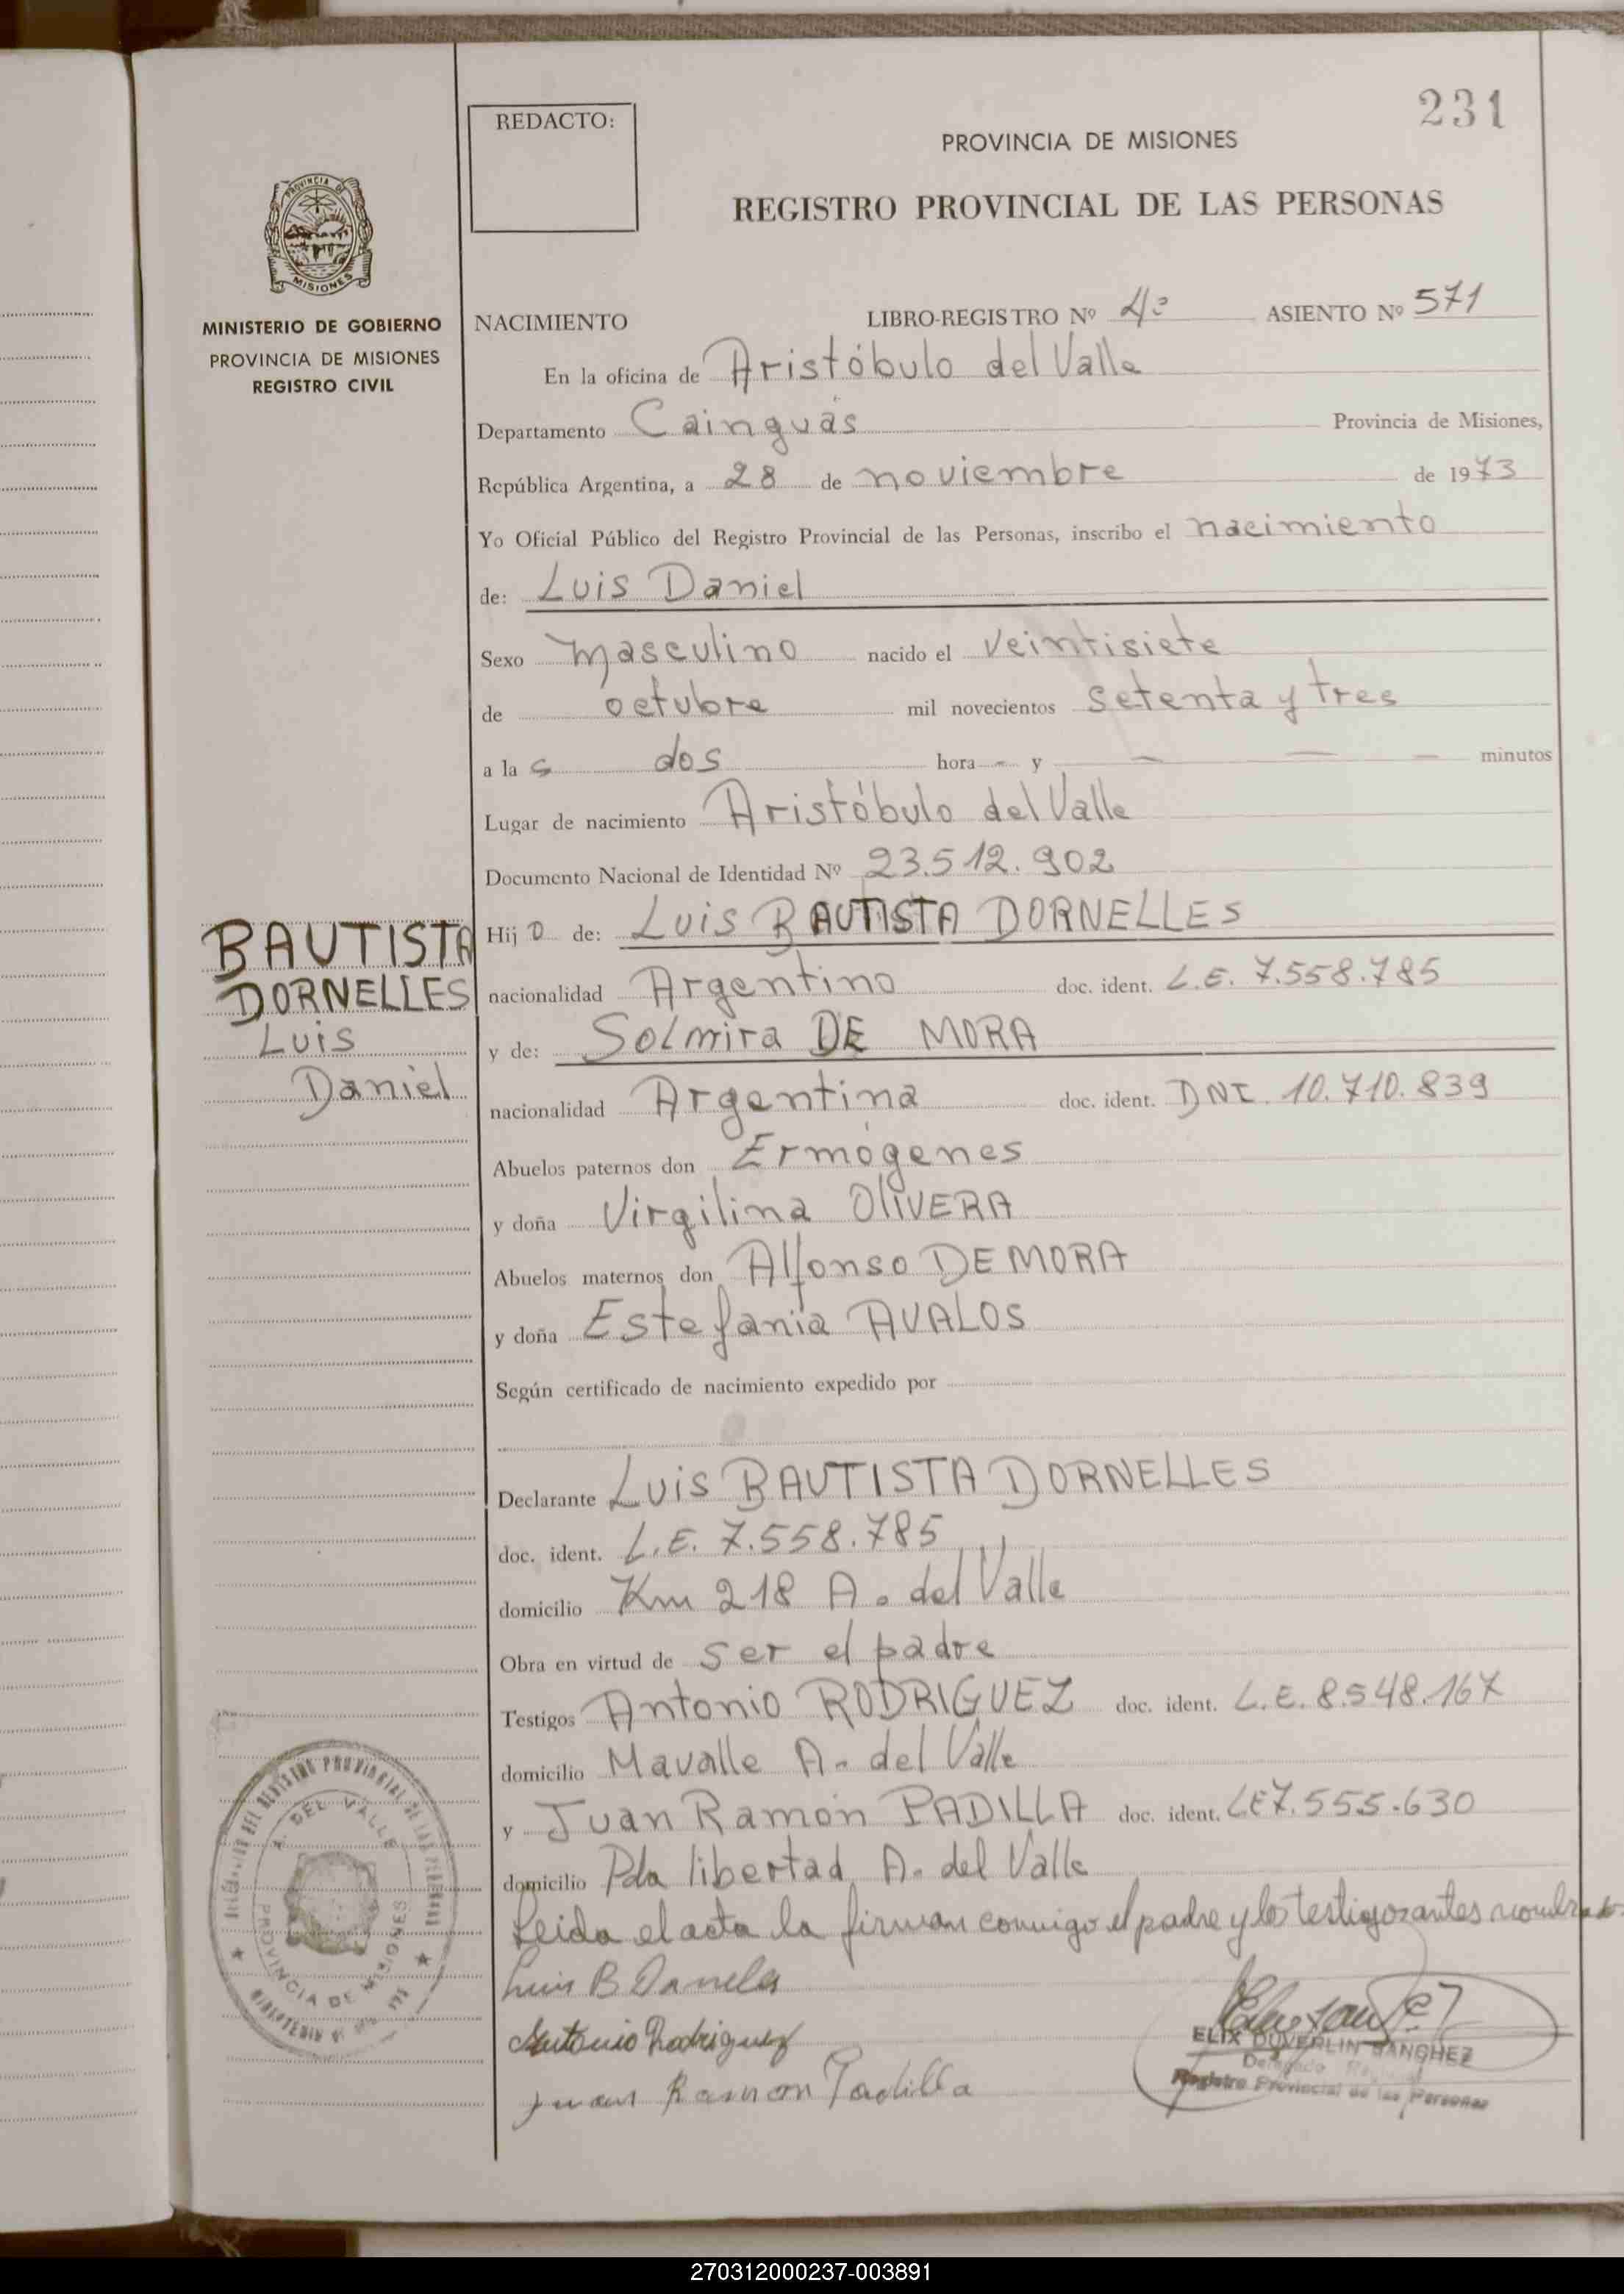 231
REDACTO:
PROVINCIA DE MISIONES
REGISTRO PROVINCIAL DE LAS PERSONAS
PROVINCIA DE
MISIONES
MINISTERIO DE GOBIERNO
PROVINCIA DE MISIONES
REGISTRO CIVIL
NACIMIENTO LIBRO-REGISTRO Nº 4º ASIENTO Nº 571
En la oficina de Aristóbulo del Valle
Departamento Cainguás Provincia de Misiones,
República Argentina, a 28 de noviembre de 1973
Yo Oficial Público del Registro Provincial de las Personas, inscribo el nacimiento
de: Luis Daniel
Sexo masculino nacido el veintisiete
de octubre mil novecientos setenta y tres
a la s dos hora - y — — — minutos
Lugar de nacimiento Aristóbulo del Valle
Documento Nacional de Identidad Nº 23.512.902
BAUTISTA
DORNELLES
Luis
Daniel
Hij o de: Luis BAUTISTA DORNELLES
nacionalidad Argentino doc. ident. L.E. 7.558.785
y de: Solmira DE MORA
nacionalidad Argentina doc. ident. DNI. 10.710.839
Abuelos paternos don Ermógenes
y doña Virgilina OLIVERA
Abuelos maternos don Alfonso DE MORA
y doña Estefania AVALOS
Según certificado de nacimiento expedido por
Declarante Luis BAUTISTA DORNELLES
doc. ident. L.E. 7.558.785
domicilio Km 218 A. del Valle
Obra en virtud de ser el padre
Testigos Antonio RODRIGUEZ doc. ident. L.E. 8.548.167
domicilio Mavalle A. del Valle
y Juan Ramón PADILLA doc. ident. LE 7.555.630
domicilio Pda libertad A. del Valle
Leida el acta la firman conmigo el padre y los testigos antes nombrados
Luis B Dornelles
Antonio Rodriguez
Juan Ramon Padilla
ELIX DUVERLIN SANCHEZ
Delegado
Registro Provincial de las Personas
DEL REGISTRO PROVINCIAL DE LAS PERSONAS
A. DEL VALLE
PROVINCIA DE MISIONES
270312000237-003891